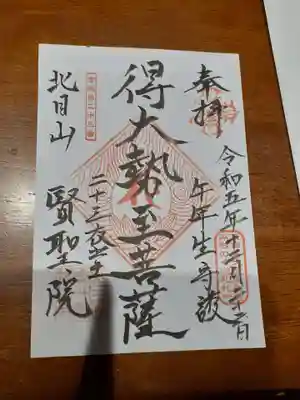 奉拝
令和五年十二月二十二日
午年生守護
得大勢至菩薩
二十三夜堂
北目山
賢聖院